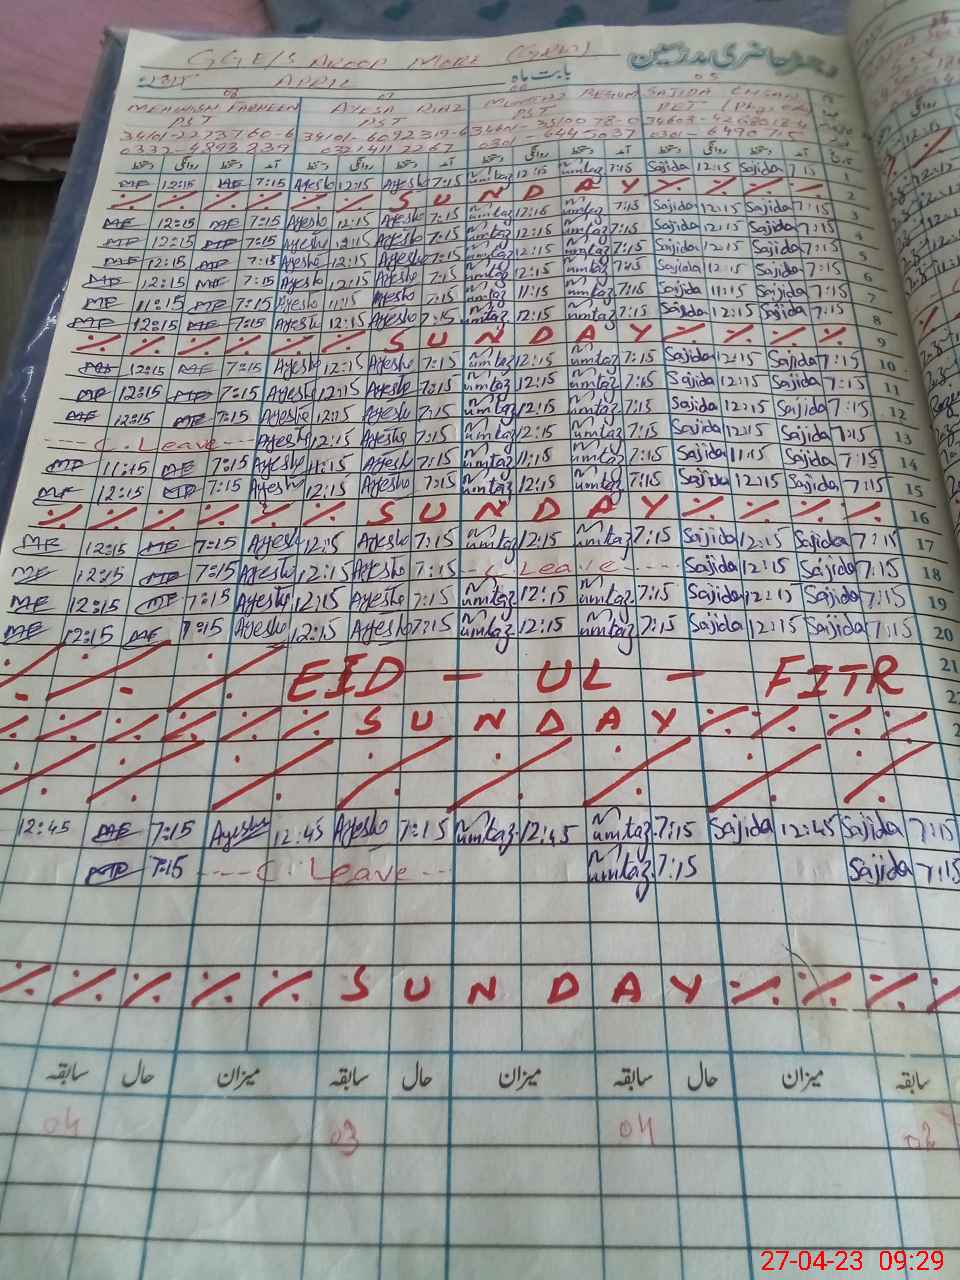 رجسٹر حاضری مدرسین
بابت ماہ APRIL
08 07 06 05
MEHWISH FARHEEN AYESA RIAZ MUMTAZ BEGUM SAJIDA EHSAN
PST PST PST PET
0332-4893239 0321411 2267 0301- 6445037 0301- 6490715
دستخط روانگی دستخط آمد دستخط روانگی دستخط آمد دستخط روانگی دستخط آمد دستخط روانگی دستخط آمد
MF 12:15 MF 7:15 Ayesha 12:15 Ayesha 7:15 Mumtaz 12:15 Mumtaz 7:15 Sajida 12:15 Sajida 7:15 1
SUNDAY 2
MF 12:15 MF 7:15 Ayesha 12:15 Ayesha 7:15 Mumtaz 12:15 Mumtaz 7:15 Sajida 12:15 Sajida 7:15 3
MF 12:15 MF 7:15 Ayesha 12:15 Ayesha 7:15 Mumtaz 12:15 Mumtaz 7:15 Sajida 12:15 Sajida 7:15 4
MF 12:15 MF 7:15 Ayesha 12:15 Ayesha 7:15 Mumtaz 12:15 Mumtaz 7:15 Sajida 12:15 Sajida 7:15 5
MF 12:15 MF 7:15 Ayesha 12:15 Ayesha 7:15 Mumtaz 12:15 Mumtaz 7:15 Sajida 12:15 Sajida 7:15 6
MF 11:15 MF 7:15 Ayesha 11:15 Ayesha 7:15 Mumtaz 11:15 Mumtaz 7:15 Sajida 11:15 Sajida 7:15 7
MF 12:15 MF 7:15 Ayesha 12:15 Ayesha 7:15 Mumtaz 12:15 Mumtaz 7:15 Sajida 12:15 Sajida 7:15 8
SUNDAY 9
MF 12:15 MF 7:15 Ayesha 12:15 Ayesha 7:15 Mumtaz 12:15 Mumtaz 7:15 Sajida 12:15 Sajida 7:15 10
MF 12:15 MF 7:15 Ayesha 12:15 Ayesha 7:15 Mumtaz 12:15 Mumtaz 7:15 Sajida 12:15 Sajida 7:15 11
MF 12:15 MF 7:15 Ayesha 12:15 Ayesha 7:15 Mumtaz 12:15 Mumtaz 7:15 Sajida 12:15 Sajida 7:15 12
C. Leave Ayesha 12:15 Ayesha 7:15 Mumtaz 12:15 Mumtaz 7:15 Sajida 12:15 Sajida 7:15 13
MF 11:15 MF 7:15 Ayesha 11:15 Ayesha 7:15 Mumtaz 11:15 Mumtaz 7:15 Sajida 11:15 Sajida 7:15 14
MF 12:15 MF 7:15 Ayesha 12:15 Ayesha 7:15 Mumtaz 12:15 Mumtaz 7:15 Sajida 12:15 Sajida 7:15 15
SUNDAY 16
MF 12:15 MF 7:15 Ayesha 12:15 Ayesha 7:15 Mumtaz 12:15 Mumtaz 7:15 Sajida 12:15 Sajida 7:15 17
MF 12:15 MF 7:15 Ayesha 12:15 Ayesha 7:15 C. Leave Sajida 12:15 Sajida 7:15 18
MF 12:15 MF 7:15 Ayesha 12:15 Ayesha 7:15 Mumtaz 12:15 Mumtaz 7:15 Sajida 12:15 Sajida 7:15 19
MF 12:15 MF 7:15 Ayesha 12:15 Ayesha 7:15 Mumtaz 12:15 Mumtaz 7:15 Sajida 12:15 Sajida 7:15 20
21
EID - UL - FITR
SUNDAY
12:45 MF 7:15 Ayesha 12:45 Ayesha 7:15 Mumtaz 12:45 Mumtaz 7:15 Sajida 12:45 Sajida 7:15
MF 7:15 C. Leave Mumtaz 7:15 Sajida 7:15
SUNDAY
سابقہ حال میزان سابقہ حال میزان سابقہ حال میزان سابقہ
04 03 04
27-04-23 09:29